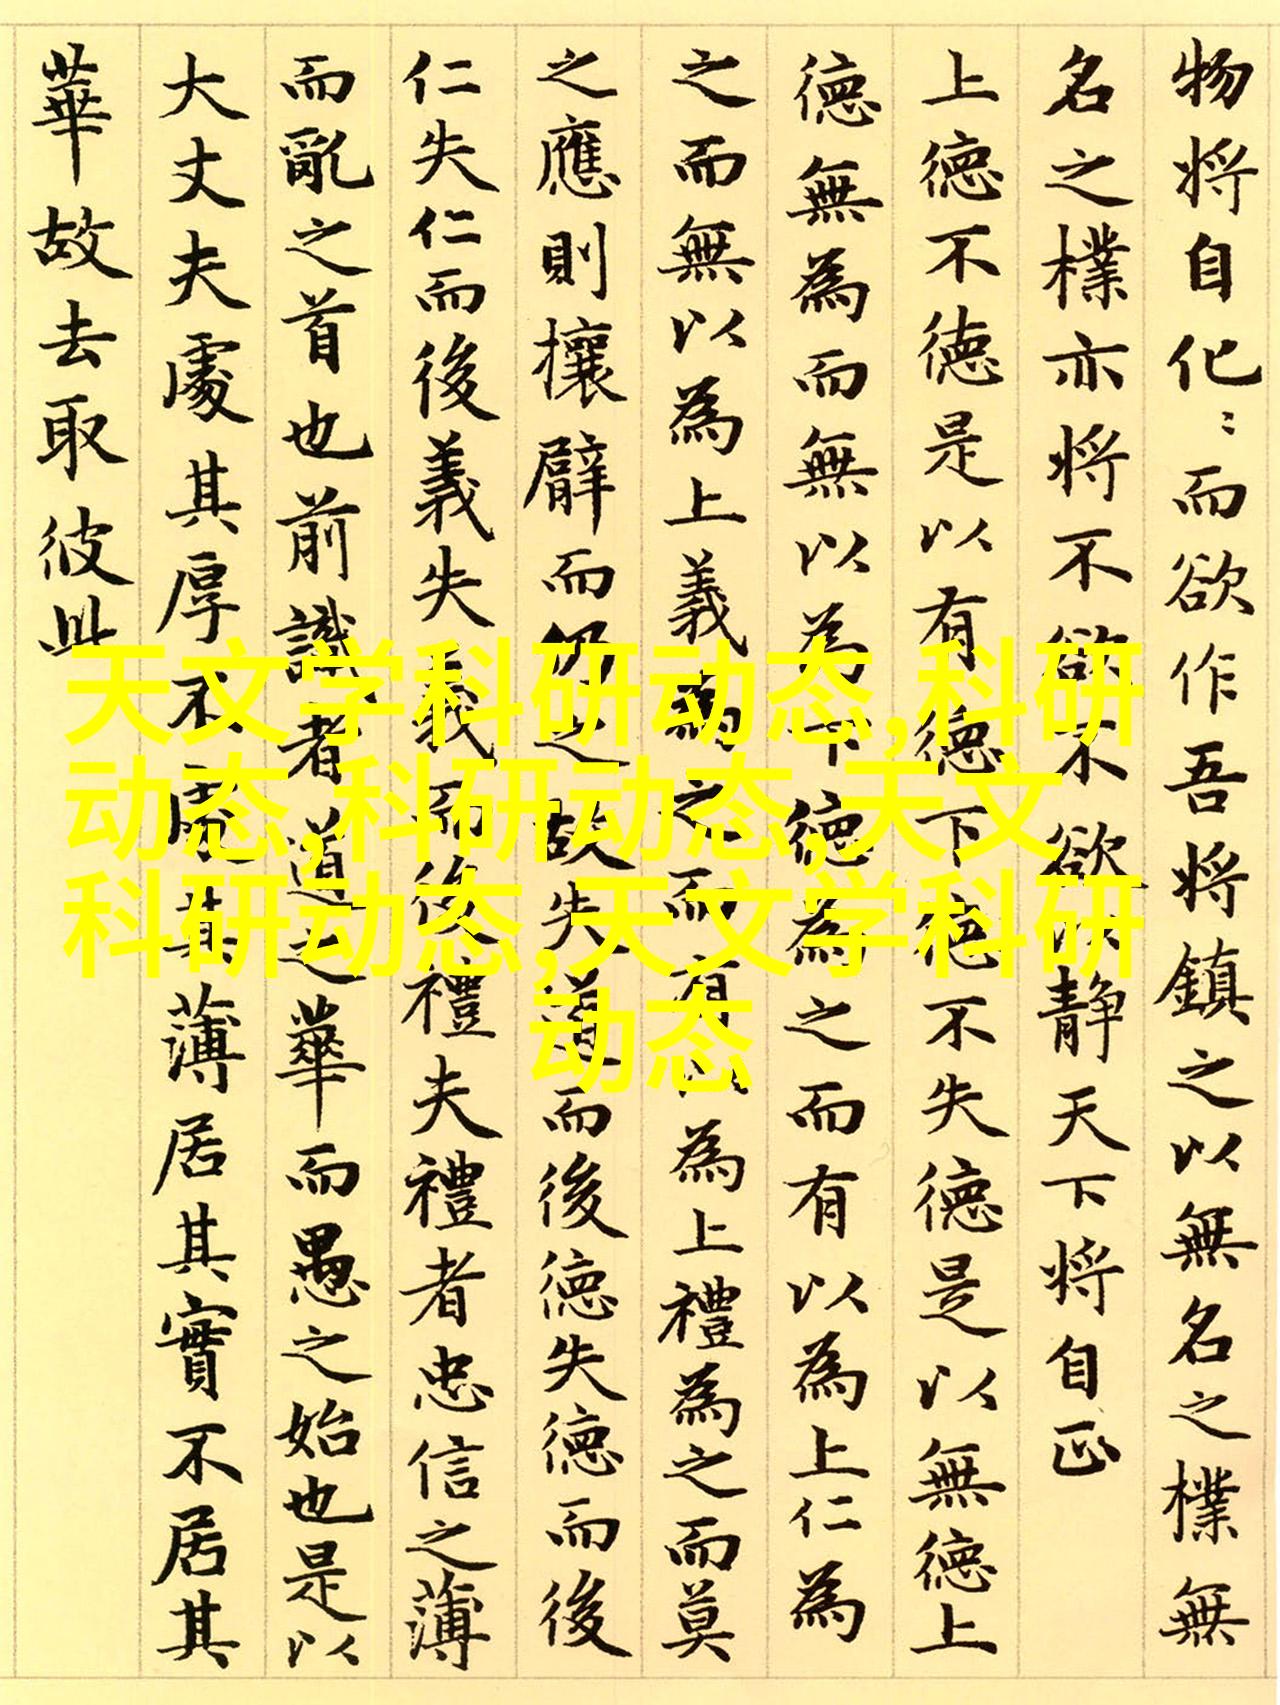 物将自化〻而欲作吾将鎮之以無名之樸無
名之樸亦将不欲不欲以静天下将自正
上德不德是以有德下德不失德是以無德上
德無為而無以為下德為之而有以為上仁為
之而無以為上義為之而有以為上禮為之而莫
之應則攘臂而仍之故失道而後德失德而後
仁失仁而後義失義而後禮夫禮者忠信之薄
而亂之首也前識者道之華而愚之始也是以
大丈夫處其厚不處其薄居其實不居其
華故去取彼此
天文学科研动态,科研
动态,科研动态,天文
科研动态,天文学科研
动态